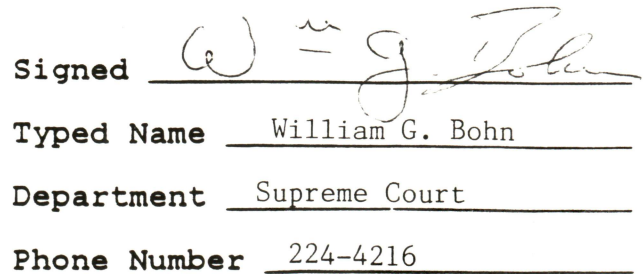 Signed Wm G. Bohn
Typed Name William G. Bohn
Department Supreme Court
Phone Number 224-4216